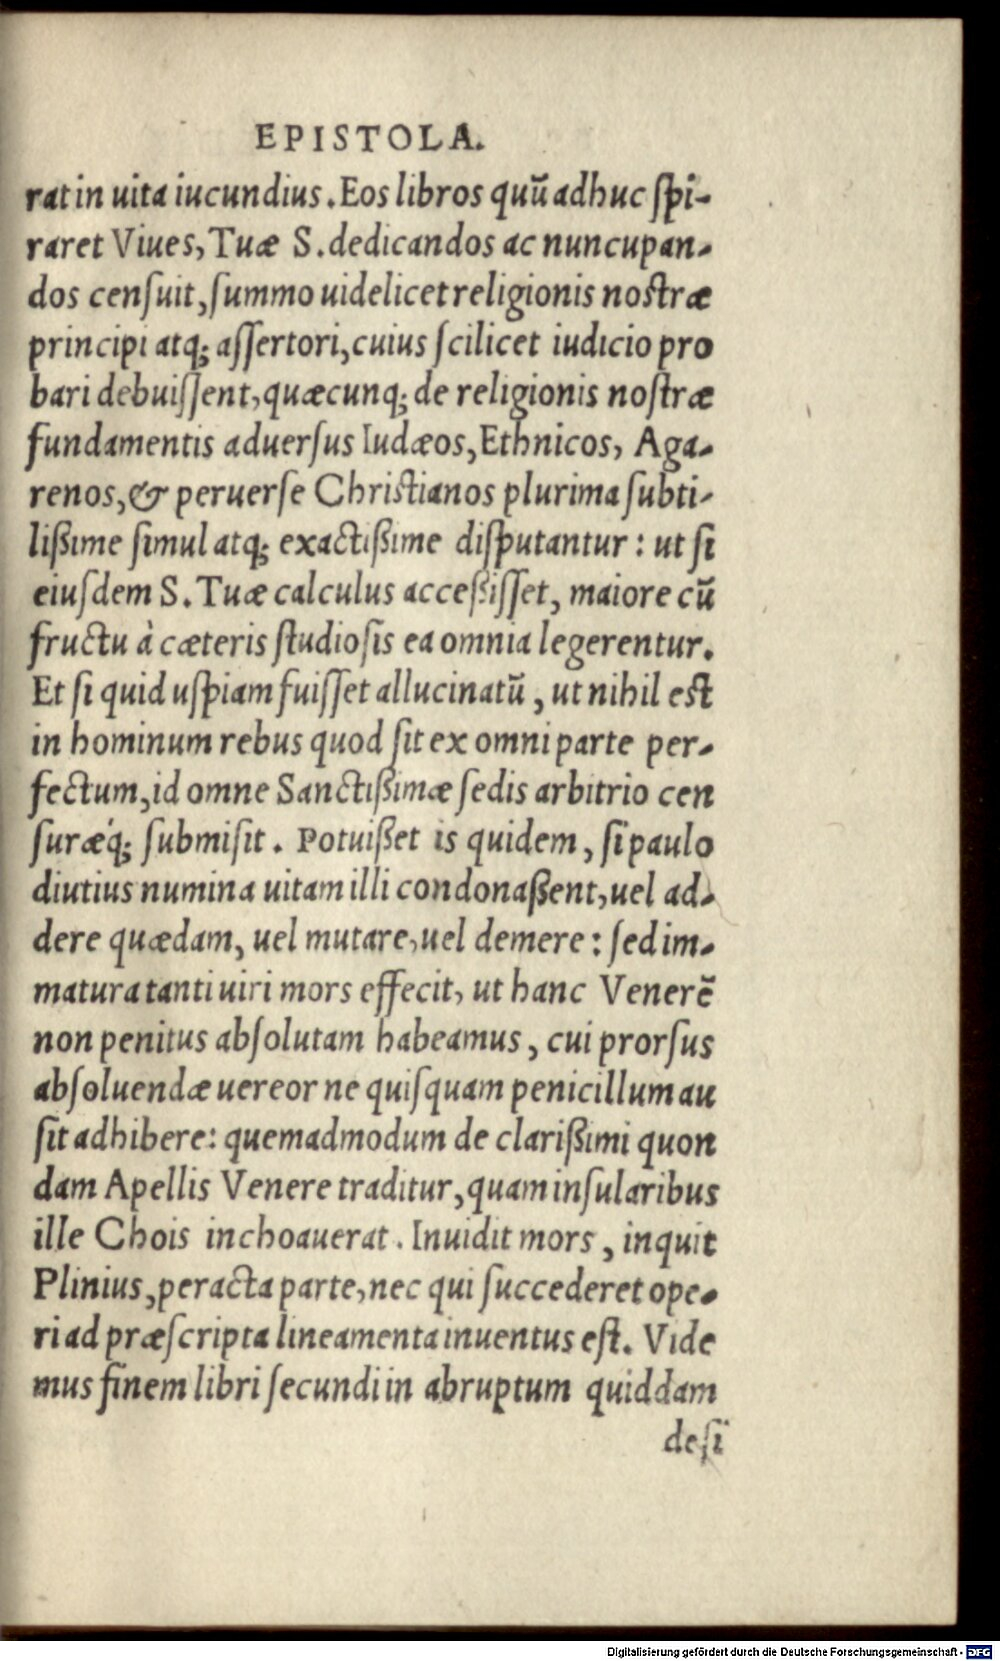 EPISTOLA.
rat in uita iucundius. Eos libros quũ adhuc ſpi-
raret Viues, Tuæ S. dedicandos ac nuncupan-
dos cenſuit, ſummo uidelicet religionis noſtræ
principi atq; aſſertori, cuius ſcilicet iudicio pro
bari debuiſſent, quæcunq; de religionis noſtræ
fundamentis aduerſus Iudæos, Ethnicos, Aga-
renos, & peruerſe Chriſtianos plurima ſubti-
lißime ſimul atq; exactißime diſputantur: ut ſi
eiuſdem S. Tuæ calculus acceßiſſet, maiore cũ
fructu à cæteris ſtudioſis ea omnia legerentur.
Et ſi quid uſpiam fuiſſet allucinatũ, ut nihil eſt
in hominum rebus quod ſit ex omni parte per-
fectum, id omne Sanctißimæ ſedis arbitrio cen
ſuræq́; ſubmiſit. Potuißet is quidem, ſi paulo
diutius numina uitam illi condonaßent, uel ad-
dere quædam, uel mutare, uel demere: ſed im-
matura tanti uiri mors effecit, ut hanc Venerẽ
non penitus abſolutam habeamus, cui prorſus
abſoluendæ uereor ne quiſquam penicillum au
ſit adhibere: quemadmodum de clarißimi quon
dam Apellis Venere traditur, quam inſularibus
ille Chois inchoauerat. Inuidit mors, inquit
Plinius, peracta parte, nec qui ſuccederet ope-
ri ad præſcripta lineamenta inuentus eſt. Vide
mus finem libri ſecundi in abruptum quiddam
deſi
Digitalisierung gefördert durch die Deutsche Forschungsgemeinschaft - DFG